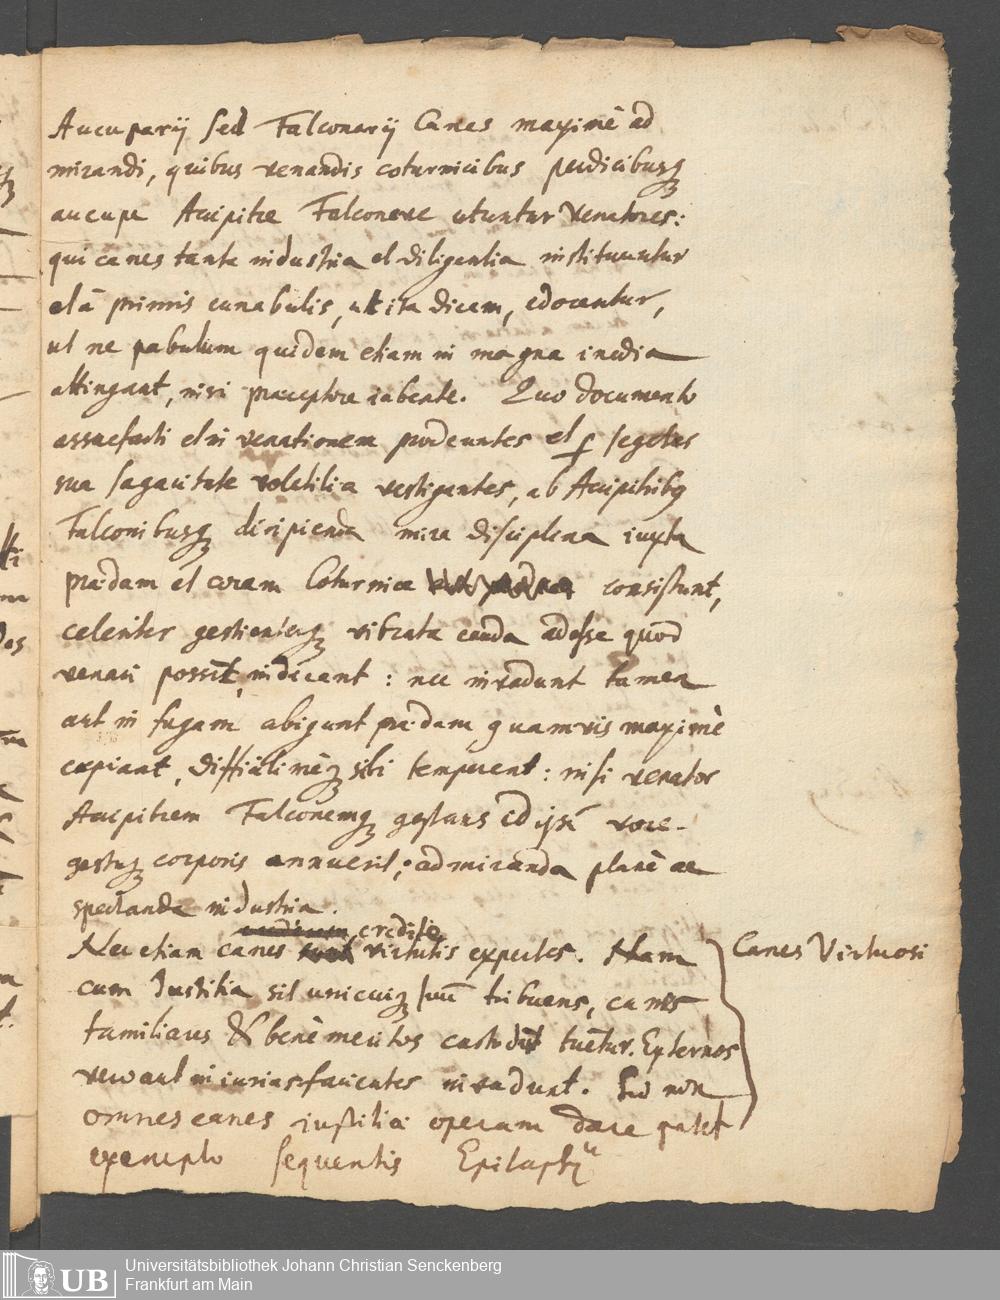 Aucuparij sed Falconarij Canes maximè ad
mirandi, quibus venandis coturnicibus perdicibusq;
aucupe Accipitre Falconeve utuntur Venatores:
qui canes tanta industria et diligentia instituuntur
et à primis cunabulis, ut ita dicam, edocentur,
ut ne pabulum quidem etiam in magna inedia
attingant, nisi præceptore iubente. Quo documento
assuefacti et in venationem prodeuntes et segetes
sua sagacitate volatilia vestigantes, ab Accipitribq
Falconibusq; diripienda mira disciplina iuxta
prædam et coram Coturnice consistunt,
celeriter gestienteq; vibrata cauda adesse quod
venari possīt, indicant: nec invadunt tamen
aut in fugam abigunt prædam, quamvis maximè
cupiant, difficilimèq; sibi temperent: nisi venator
Accipitrem Falconemq; gestans id ipsī voce
gestuq; corporis annuerit; admiranda planè ac
spectanda industria.
credito
Nec etiam canes virtutis expertes. Nam
Canes Virtuosi
cum Justitia sit unicuiq; suū tribuens, canes
familiares & benè meritos custodiūt tuētur. Externos
vero aut iniurias facientes invadunt. Sed non
omnes canes iustitiæ operam dare patet
exemplo sequentis Epitaphij
Universitätsbibliothek Johann Christian Senckenberg
UB
Frankfurt am Main